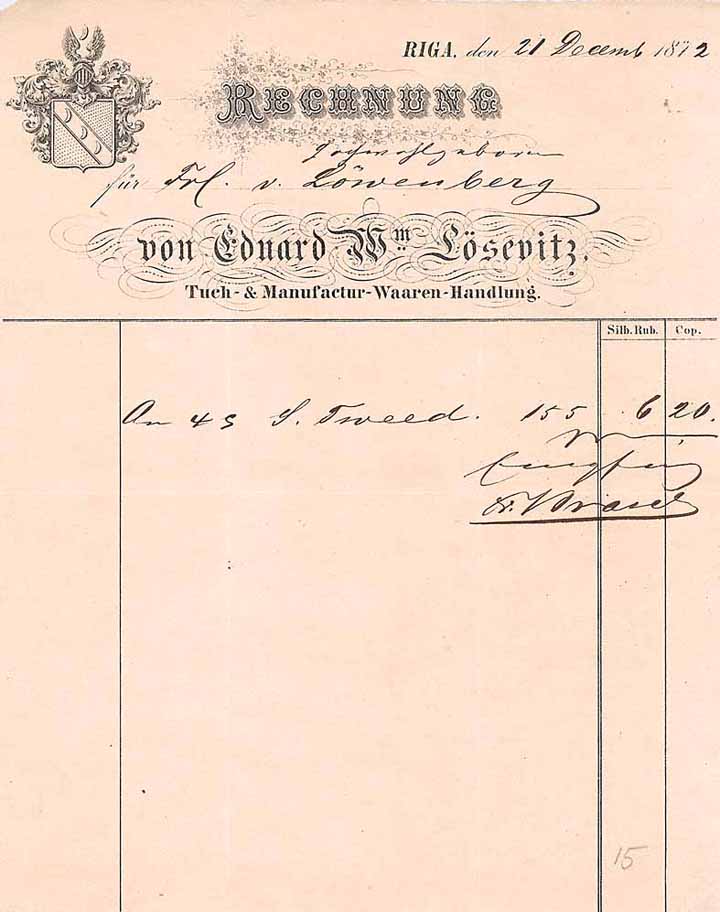 RIGA, den 21 Decemb 1872
RECHNUNG
Hochwohlgeboren
für Frl. v. Löwenberg
von Eduard Wm Lösevitz.
Tuch- & Manufactur-Waaren-Handlung.
Silb. Rub. Cop.
An 4 S. Tweed. 155 6 20.
15